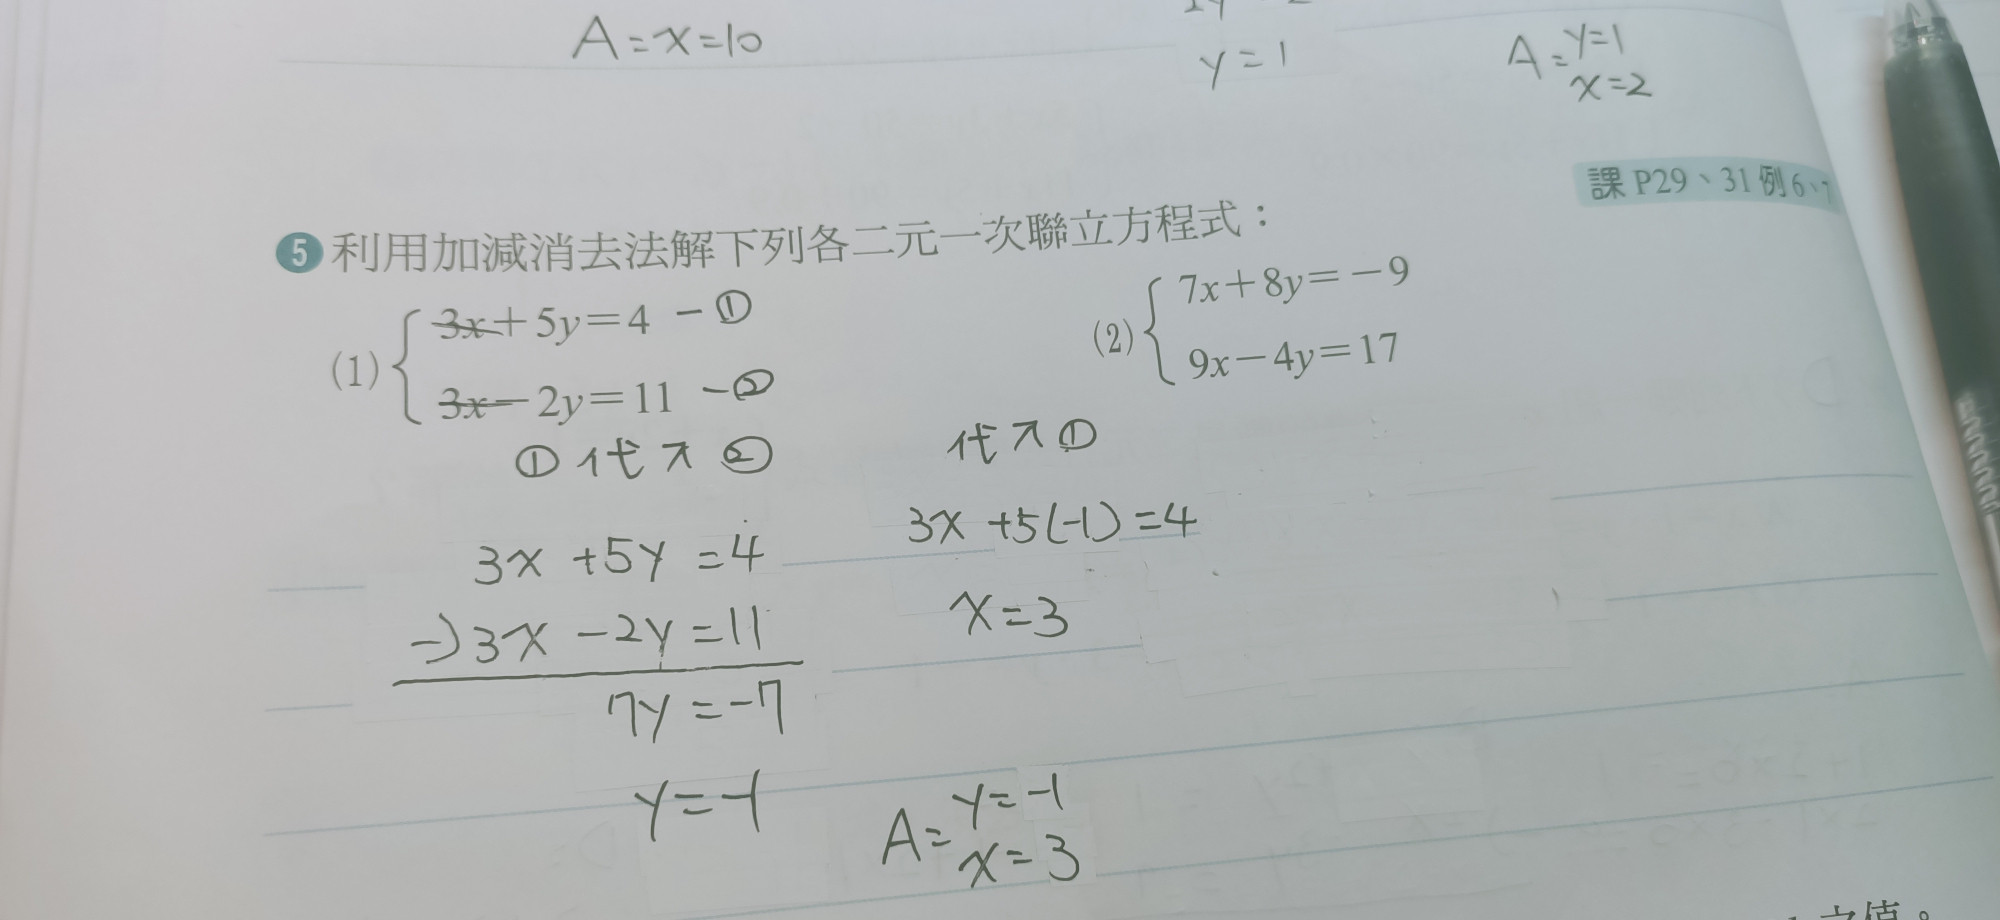 A=x=10
y=1
A=y=1
x=2
課P29、31例6、7
5 利用加減消去法解下列各二元一次聯立方程式：
(1) 3x+5y=4 -①
3x-2y=11 -②
(2) 7x+8y=-9
9x-4y=17
①代入②
3x+5y=4
-)3x-2y=11
7y=-7
y=-1
代入①
3x+5(-1)=4
x=3
A=y=-1
x=3
之值。